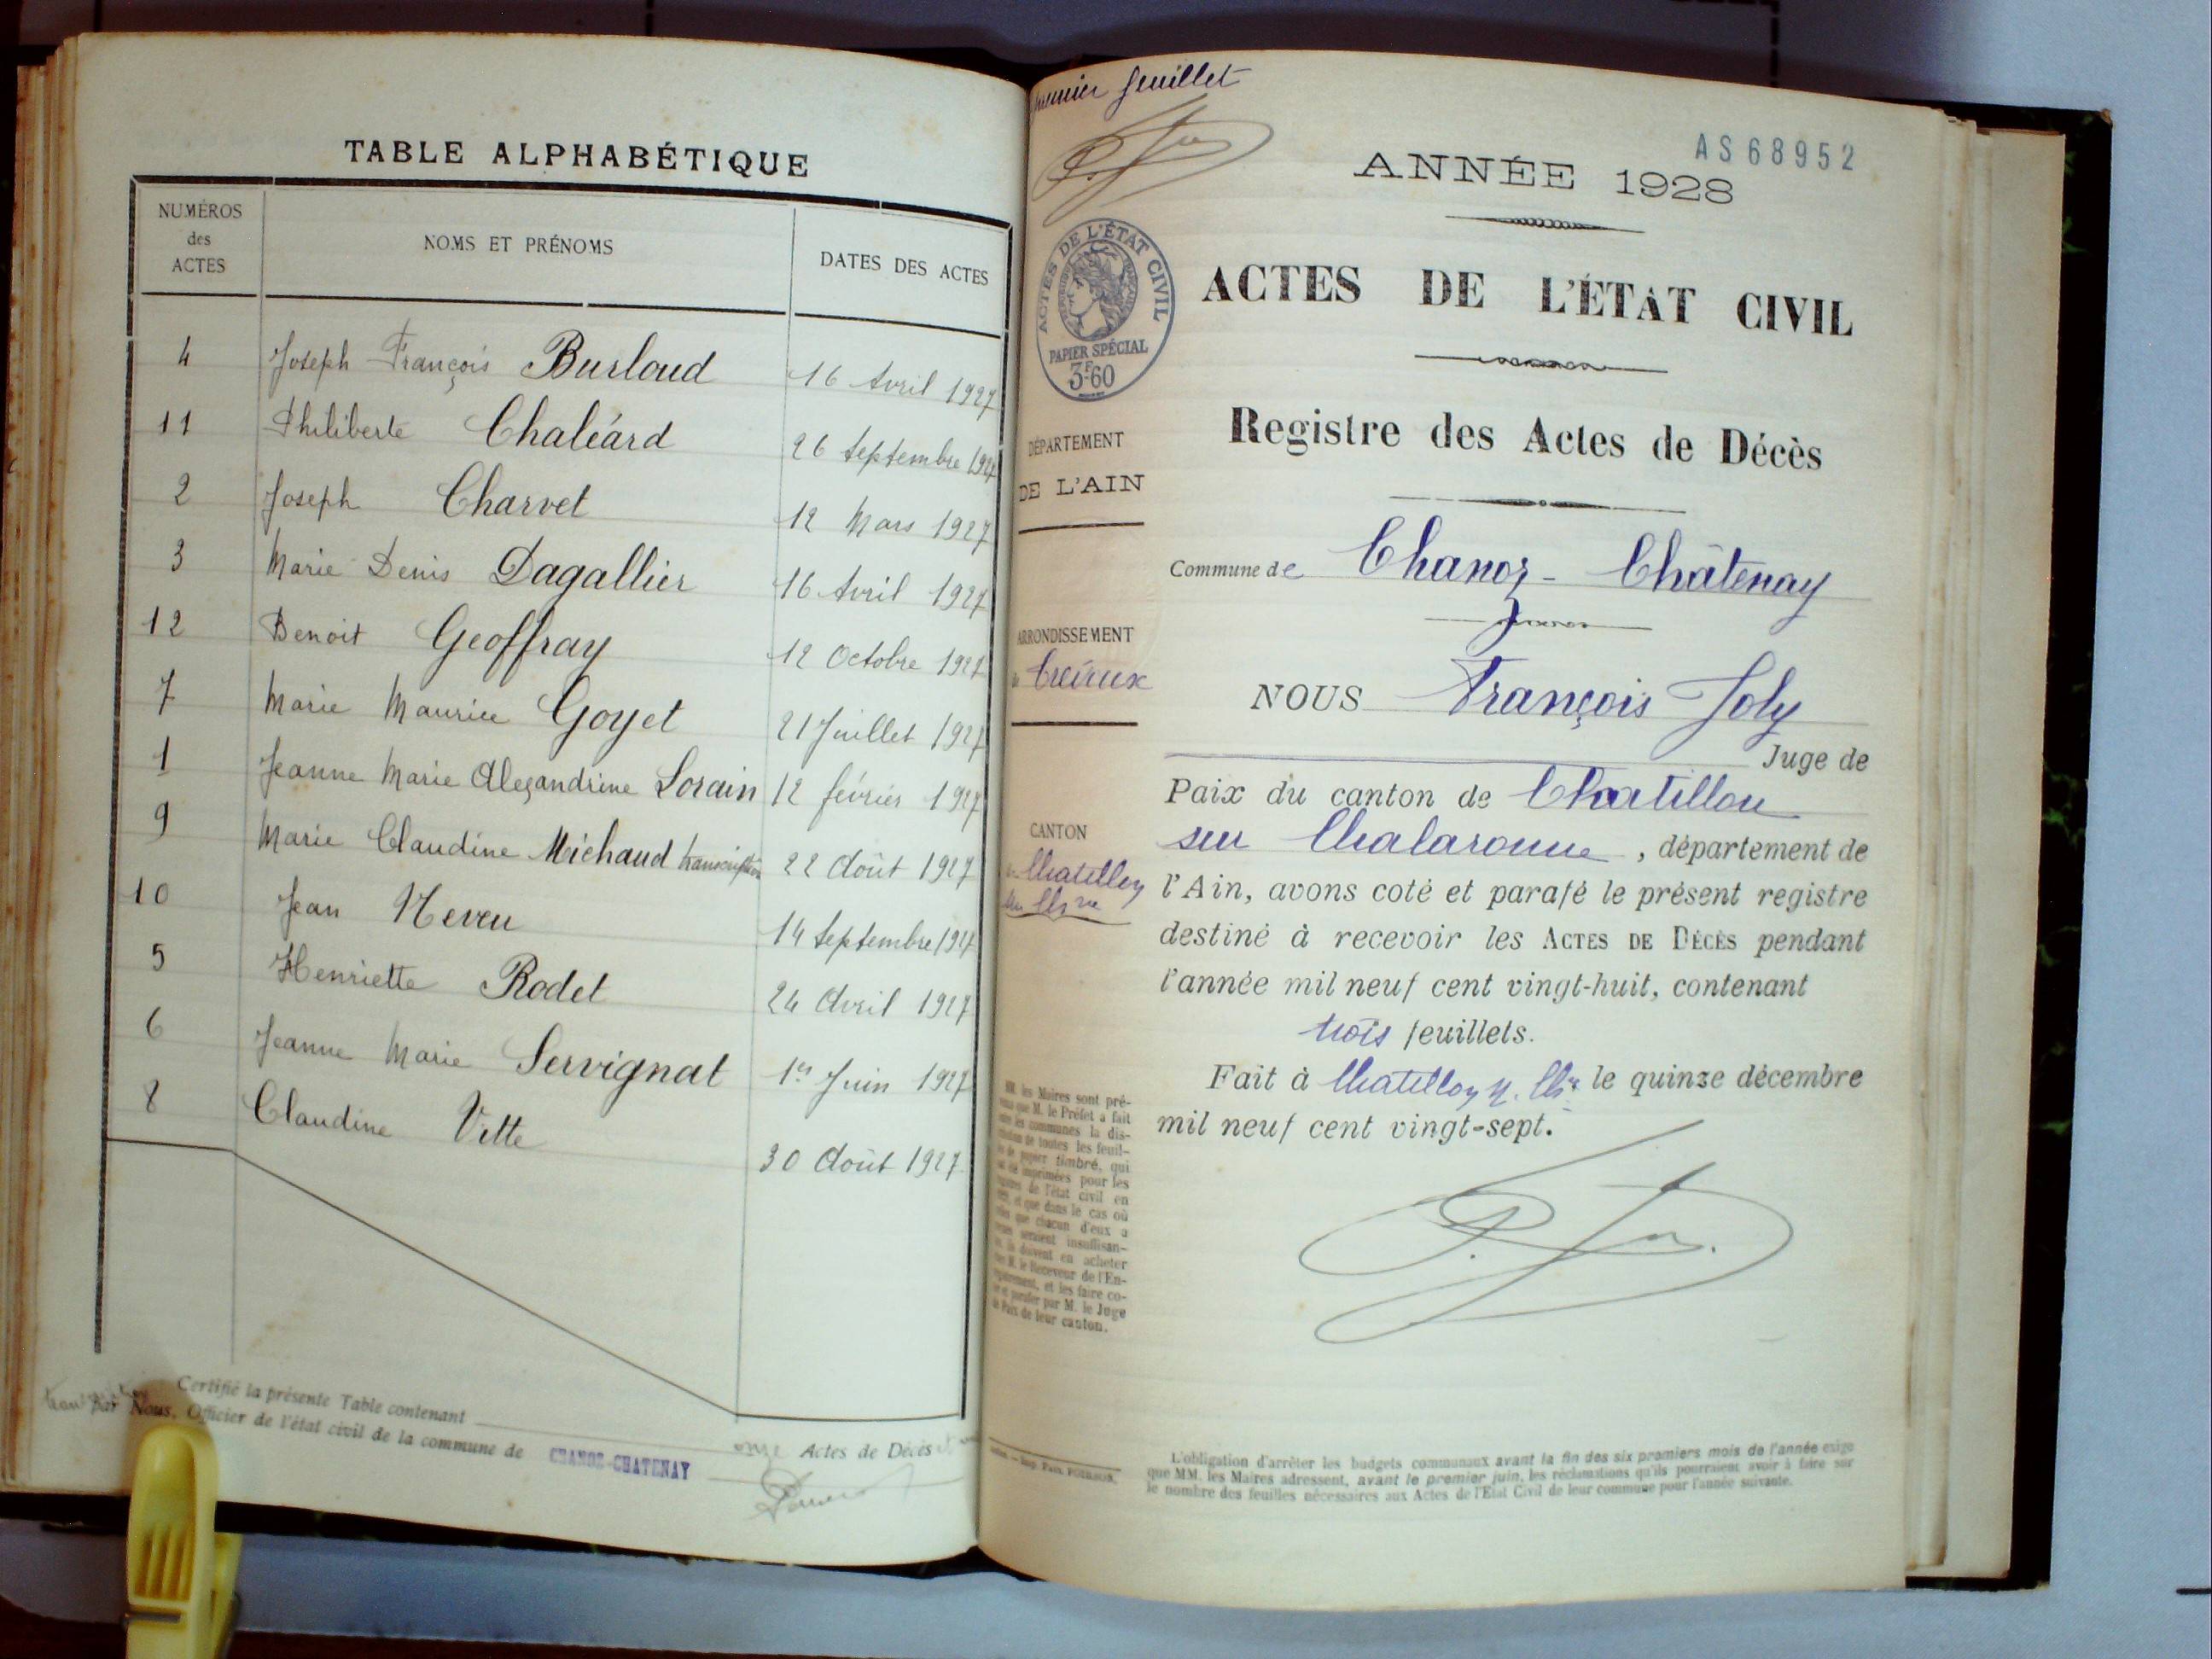 TABLE ALPHABÉTIQUE
NUMÉROS
des
ACTES
NOMS ET PRÉNOMS
DATES DES ACTES
4 Joseph François Burloud 16 Avril 1927
11 Philiberte Chaléard 26 Septembre 1927
2 Joseph Charvet 12 Mars 1927
3 Marie Denis Dagallier 16 Avril 1927
12 Benoit Geoffray 12 Octobre 1927
7 Marie Maurice Goyet 21 Juillet 1927
1 Jeanne Marie Alexandrine Lorain 12 février 1927
9 Marie Claudine Michaud transcription 22 Août 1927
10 Jean Neveu 14 Septembre 1927
5 Henriette Rodet 24 Avril 1927
6 Jeanne Marie Servignat 1er Juin 1927
8 Claudine Vitte 30 Août 1927
Certifié la présente Table contenant onze Actes de Décès
par Nous, Officier de l'état civil de la commune de CHANOZ-CHATENAY
premier feuillet
AS 68952
ANNÉE 1928
ACTES DE L'ÉTAT CIVIL
PAPIER SPÉCIAL
3F60
ACTES DE L'ÉTAT CIVIL
Registre des Actes de Décès
DÉPARTEMENT
DE L'AIN
Commune de Chanoz-Châtenay
ARRONDISSEMENT
de Trévoux
NOUS François Joly
Juge de
Paix du canton de Chatillon
sur Chalaronne, département de
l'Ain, avons coté et parafé le présent registre
destiné à recevoir les ACTES DE DÉCÈS pendant
l'année mil neuf cent vingt-huit, contenant
trois feuillets.
Fait à Chatillon s. Chne le quinze décembre
mil neuf cent vingt-sept.
CANTON
de Chatillon
sur Chne
MM. les Maires sont pré-
venus que M. le Préfet a fait
dans les communes la dis-
tribution de toutes les feuil-
les de papier timbré, qui
ont été imprimées pour les
registres de l'état civil en
et que dans le cas où
celles que chacun d'eux a
reçues seraient insuffisan-
tes, ils doivent en acheter
chez M. le Receveur de l'En-
registrement, et les faire co-
ter et parafer par M. le Juge
de Paix de leur canton.
L'obligation d'arrêter les budgets communaux avant la fin des six premiers mois de l'année exige
que MM. les Maires adressent, avant le premier juin, les réclamations qu'ils pourraient avoir à faire sur
le nombre des feuilles nécessaires aux Actes de l'Etat Civil de leur commune pour l'année suivante.